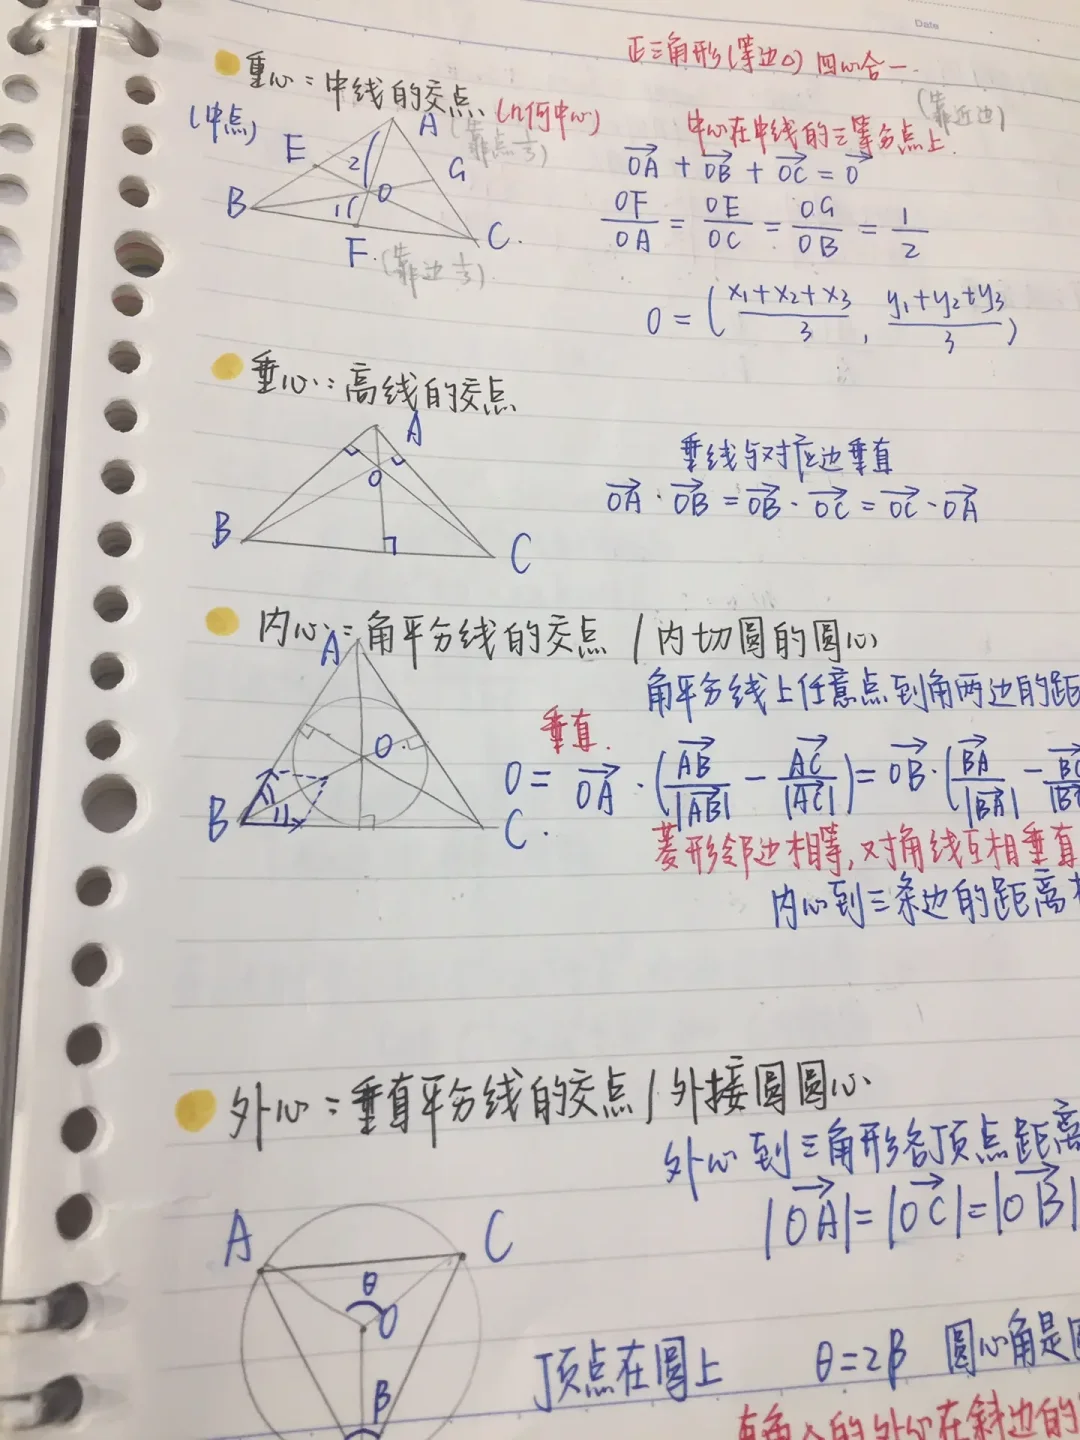 Date
正三角形(等边△)四心合一.
重心:中线的交点.(几何中心)
(靠近边)
(中点)
中心在中线的三等分点上.
A
(靠点⅓)
E
2
G
O
B
1
C.
F.
(靠边⅓)
$\overrightarrow{OA}+\overrightarrow{OB}+\overrightarrow{OC}=\overrightarrow{0}$
$\frac{OF}{OA}=\frac{OE}{OC}=\frac{OG}{OB}=\frac{1}{2}$
$O=(\frac{x_1+x_2+x_3}{3},\frac{y_1+y_2+y_3}{3})$
垂心:高线的交点
A
O
B
C
垂线与对应边垂直
$\overrightarrow{OA}\cdot\overrightarrow{OB}=\overrightarrow{OB}\cdot\overrightarrow{OC}=\overrightarrow{OC}\cdot\overrightarrow{OA}$
内心:角平分线的交点/内切圆的圆心
A
角平分线上任意点到角两边的距
O
垂直.
B
C.
$0=\overrightarrow{OA}\cdot(\frac{\overrightarrow{AB}}{|\overrightarrow{AB}|}-\frac{\overrightarrow{AC}}{|\overrightarrow{AC}|})=\overrightarrow{OB}\cdot(\frac{\overrightarrow{BA}}{|\overrightarrow{BA}|}-$
菱形邻边相等,对角线互相垂直
内心到三条边的距离
外心:垂直平分线的交点/外接圆圆心
外心到三角形各顶点距离
$|\overrightarrow{OA}|=|\overrightarrow{OC}|=|\overrightarrow{OB}|$
A
C
θ
O
β
顶点在圆上 θ=2β 圆心角是
直角△的外心在斜边的